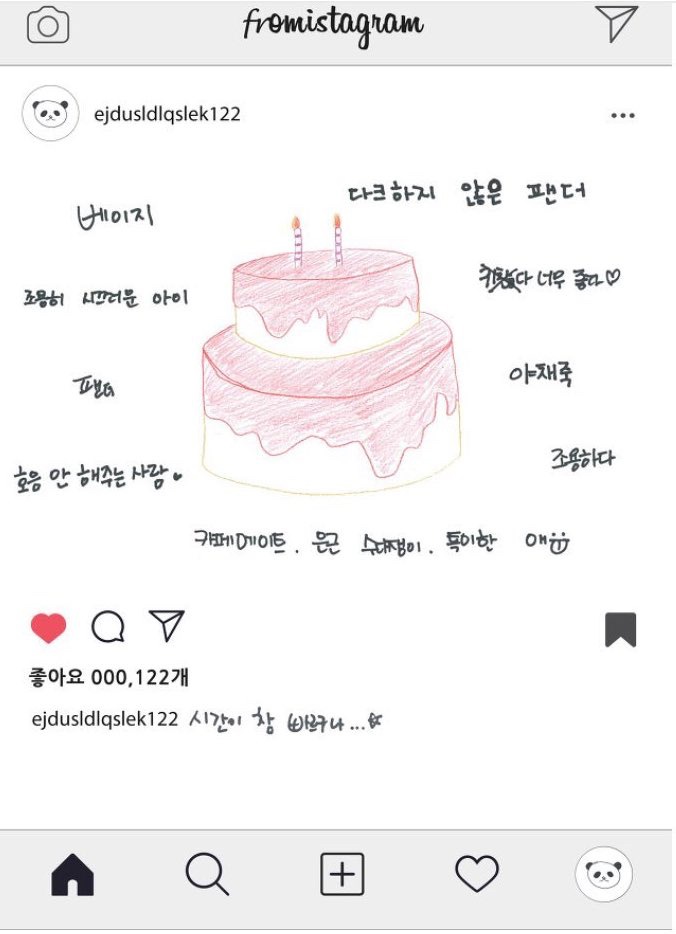 fromistagram
ejdusldlqslek122
다크하지 않은 팬더
베이지
너무 좋다♡
조용히 시끄러운 아이
야채죽
팬더
조용하다
호응 안 해주는 사람
카페메이트. 은근 수다쟁이. 특이한 애
좋아요 000,122개
ejdusldlqslek122 시간이 참 빠르구나...☆